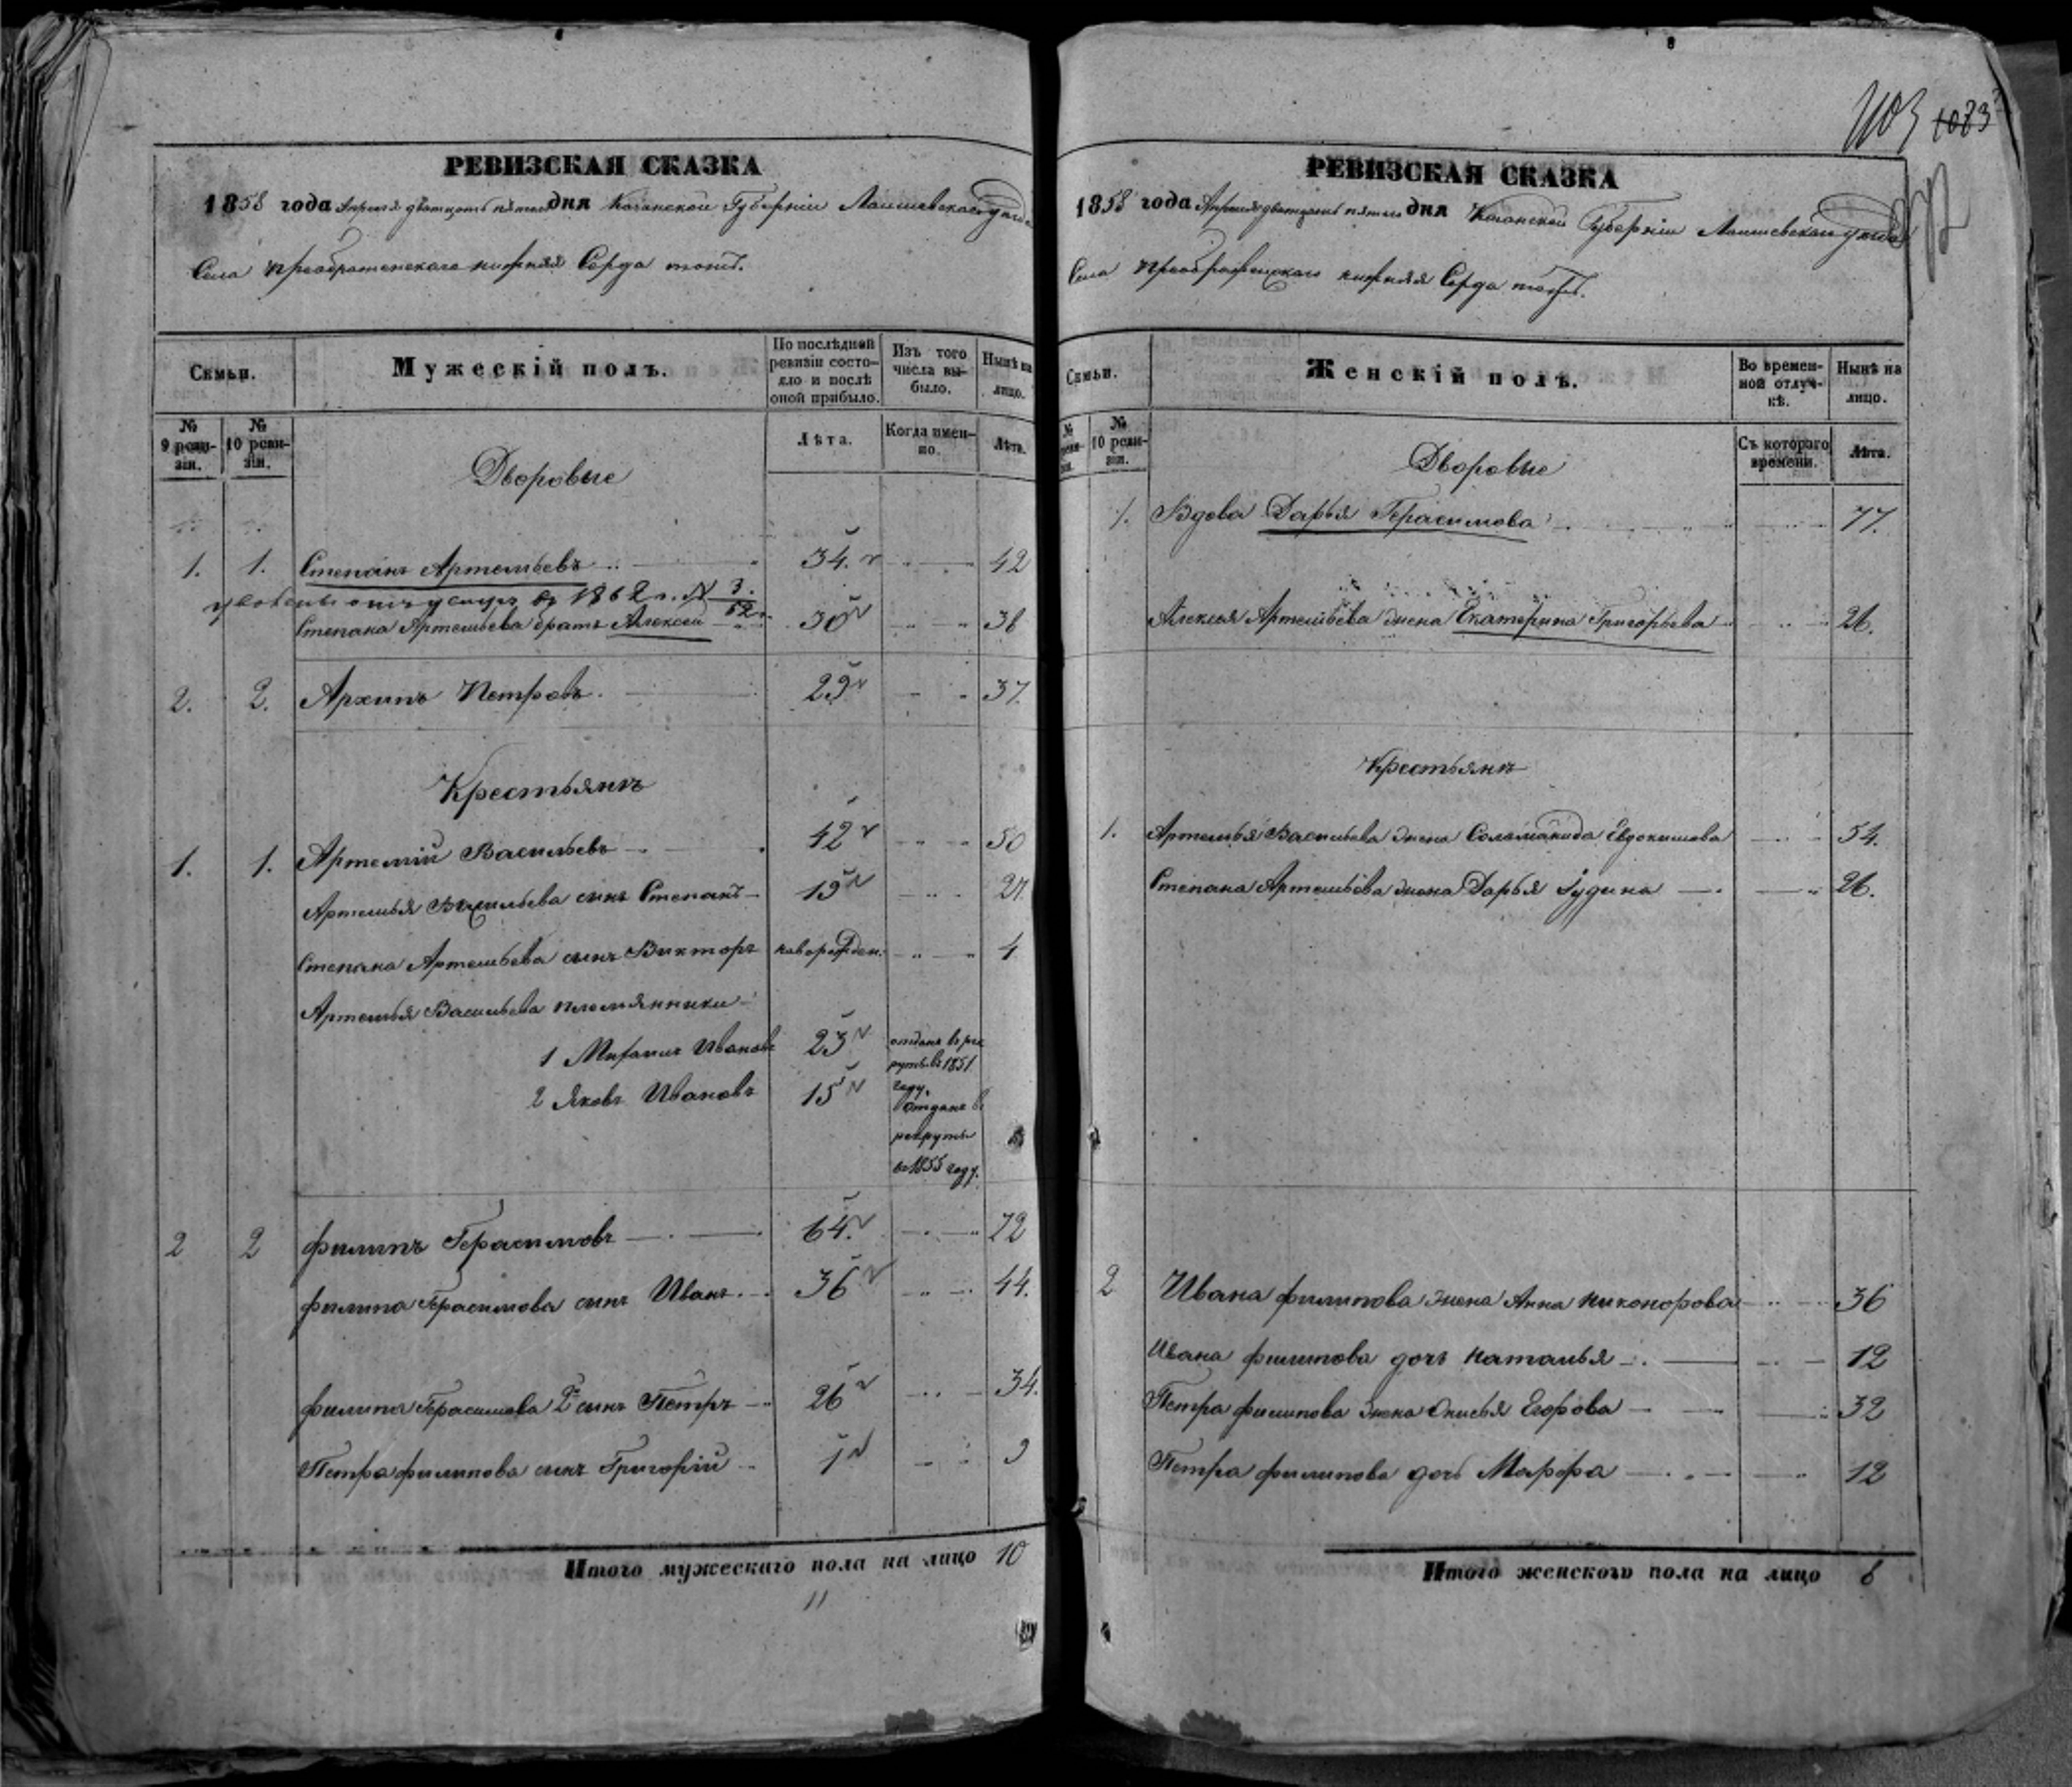 РЕВИЗСКАЯ СКАЗКА
1858 года Апреля дватцать пятого дня Казанской Губерніи Лаишевскаго уезда
Села Преображенскаго нижняя Серда тожъ.
Семьи.
Мужескій полъ.
По послѣдней ревизіи состояло и послѣ оной прибыло.
Изъ того числа выбыло.
Нынѣ на лицо.
№ 9 ревизіи.
№ 10 ревизіи.
Лѣта.
Когда именно.
Лѣта.
Дворовые
1. 1. Степанъ Артемьевъ 34. 42
уволенъ 1862 г. № 3.
52
Степана Артемьева братъ Алексей 30 38
2. 2. Архипъ Петровъ. 29 37.
Крестьянъ
1. 1. Артемій Васильевъ 42 50
Артемья Васильева сынъ Степанъ 19 27.
Степана Артемьева сынъ Викторъ новорожден. 4
Артемья Васильева племянники
1 Ивановъ 23 отданъ въ рекруты въ 1851 году.
2 Яковъ Ивановъ 15 отданъ въ рекруты въ 1855 году.
2 2 Филипъ Герасимовъ 64. 72
Филипа Герасимова сынъ Иванъ. 36 44.
Филипа Герасимова 2й сынъ Петръ 26 34.
Петра Филипова сынъ Григорій 1 9
Итого мужескаго пола на лицо 10
11
1103 1083
РЕВИЗСКАЯ СКАЗКА
1858 года Апреля дватцать пятого дня Казанской Губерніи Лаишевскаго уезда
Села Преображенскаго нижняя Серда тожъ.
Семьи.
Женскій полъ.
Во временной отлучкѣ.
Нынѣ на лицо.
№ ревизіи.
№ 10 ревизіи.
Съ котораго времени.
Лѣта.
Дворовые
1. Вдова Дарья Герасимова 77.
Алексея Артемьева жена Екатерина Григорьева 26.
Крестьянъ
1. Артемья Васильева жена Соломанида Евдокимова 54.
Степана Артемьева жена Дарья Іудина 26.
2 Ивана Филипова жена Анна Никонорова 36
Ивана Филипова дочь Наталья 12
Петра Филипова жена Онисья Егорова 32
Петра Филипова дочь Марфа 12
Итого женского пола на лицо 6